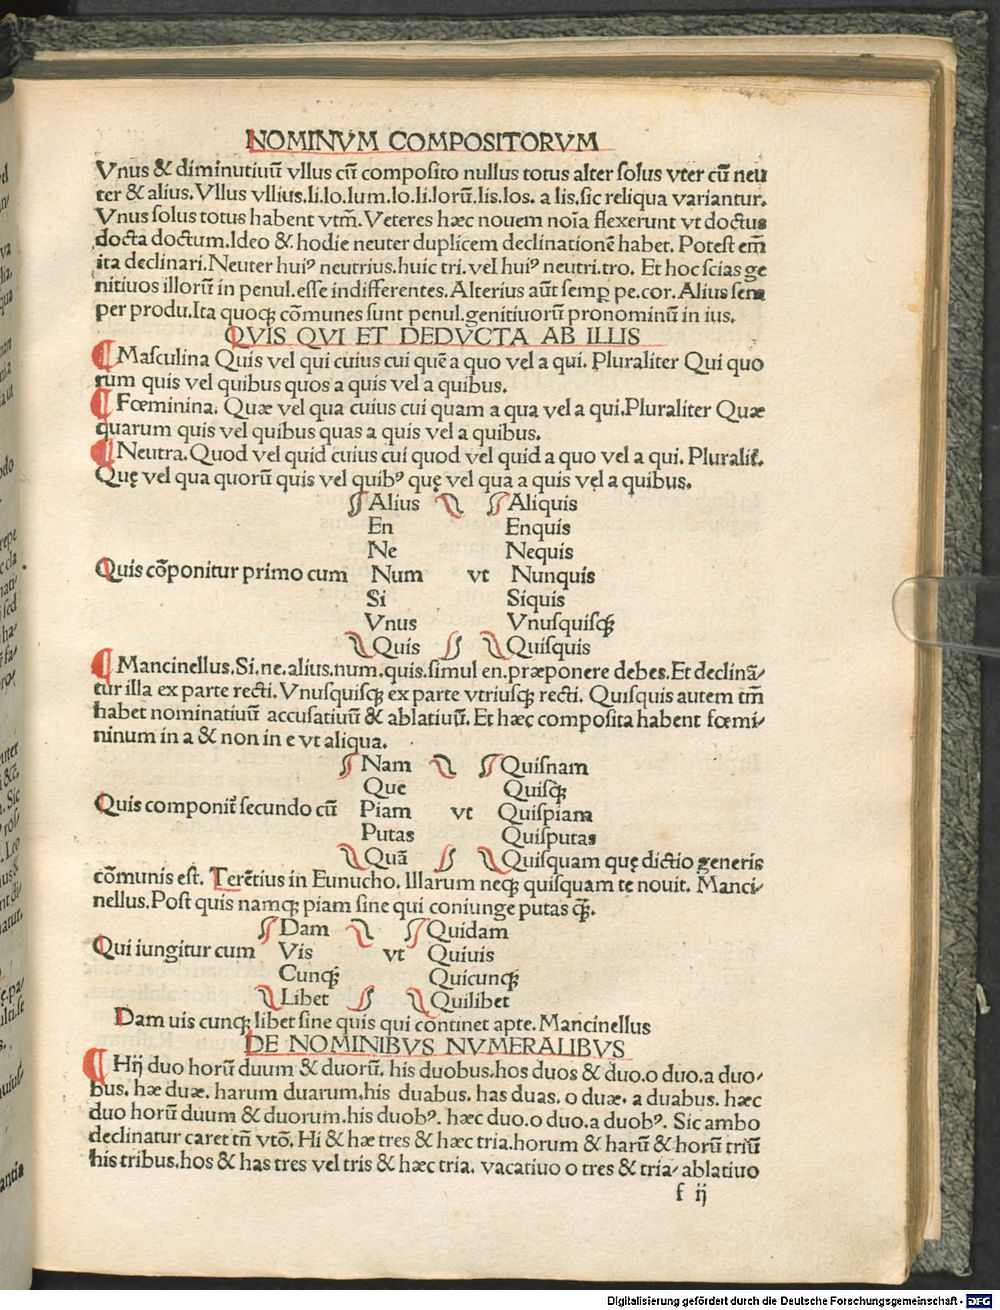 NOMINVM COMPOSITORVM
Vnus & diminutiuū vllus cū composito nullus totus alter solus vter cū neu
ter & alius. Vllus vllius.li.lo.lum.lo.li.lorū.lis.los. a lis.sic reliqua variantur.
Vnus solus totus habent vtm̄. Veteres hæc nouem noīa flexerunt vt doctus
docta doctum.Ideo & hodie neuter duplicem declinationē habet. Potest em̄
ita declinari.Neuter huiꝰ neutrius.huic tri.vel huiꝰ neutri.tro. Et hoc scias ge
nitiuos illorū in penul.esse indifferentes.Alterius aūt semꝑ pe.cor. Alius sem
per produ.Ita quoqꝫ cōmunes sunt penul.genitiuorū pronominū in ius.
QVIS QVI ET DEDVCTA AB ILLIS
¶ Masculina Quis vel qui cuius cui quē a quo vel a qui. Pluraliter Qui quo
rum quis vel quibus quos a quis vel a quibus.
¶ Fœminina. Quæ vel qua cuius cui quam a qua vel a qui.Pluraliter Quæ
quarum quis vel quibus quas a quis vel a quibus.
¶ Neutra. Quod vel quid cuius cui quod vel quid a quo vel a qui. Pluralit̄.
Quę vel qua quorū quis vel quibꝰ quę vel qua a quis vel a quibus.
Alius Aliquis
En Enquis
Ne Nequis
Quis cōponitur primo cum Num vt Nunquis
Si Siquis
Vnus Vnusquisqꝫ
Quis Quisquis
¶ Mancinellus.Si.ne.alius.num.quis.simul en.præponere debes.Et declinā/
tur illa ex parte recti. Vnusquisqꝫ ex parte vtriusqꝫ recti. Quisquis autem tm̄
habet nominatiuū accusatiuū & ablatiuū. Et hæc composita habent fœmi/
ninum in a & non in e vt aliqua.
Nam Quisnam
Que Quisqꝫ
Quis componit̄ secundo cū Piam vt Quispiam
Putas Quisputas
Quā Quisquam quę dictio generis
cōmunis est. Terētius in Eunucho. Illarum neqꝫ quisquam te nouit. Manci/
nellus.Post quis namqꝫ piam sine qui coniunge putas qꝫ̄.
Dam Quidam
Qui iungitur cum Vis vt Quiuis
Cunqꝫ Quicunqꝫ
Libet Quilibet
Dam uis cunqꝫ libet sine quis qui continet apte. Mancinellus
DE NOMINIBVS NVMERALIBVS
¶ Hij duo horū duum & duorū. his duobus.hos duos & duo.o duo.a duo/
bus. hæ duæ. harum duarum.his duabus. has duas. o duæ. a duabus. hæc
duo horū duum & duorum.his duobꝰ. hæc duo.o duo.a duobꝰ. Sic ambo
declinatur caret tn̄ vtō. Hi & hæ tres & hæc tria.horum & harū & horū triū
his tribus.hos & has tres vel tris & hæc tria. vacatiuo o tres & tria/ ablatiuo
f ij
Digitalisierung gefördert durch die Deutsche Forschungsgemeinschaft - DFG